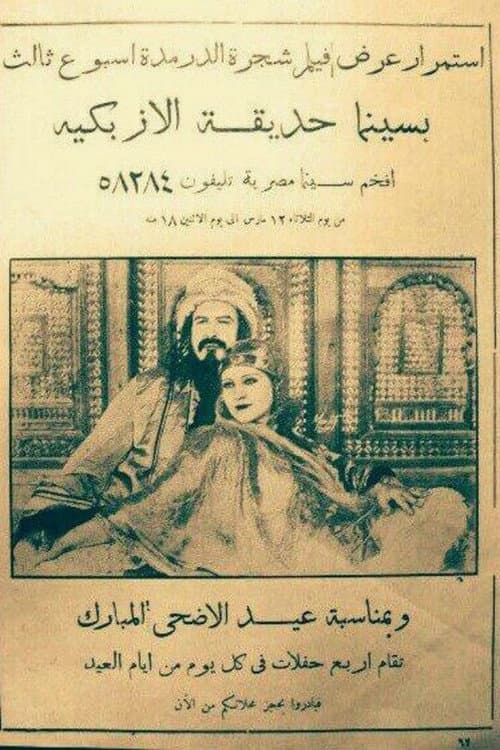 استمرار عرض فيلم شجرة الدر مدة اسبوع ثالث
بسينما حديقة الازبكيه
افخم سينما مصرية تليفون ٥٨٢٨٤
من يوم الثلاثاء ١٢ مارس الى يوم الاثنين ١٨ منه
وبمناسبة عيد الاضحى المبارك
تقام اربع حفلات فى كل يوم من ايام العيد
فبادروا بحجز محلاتكم من الآن
٦٢